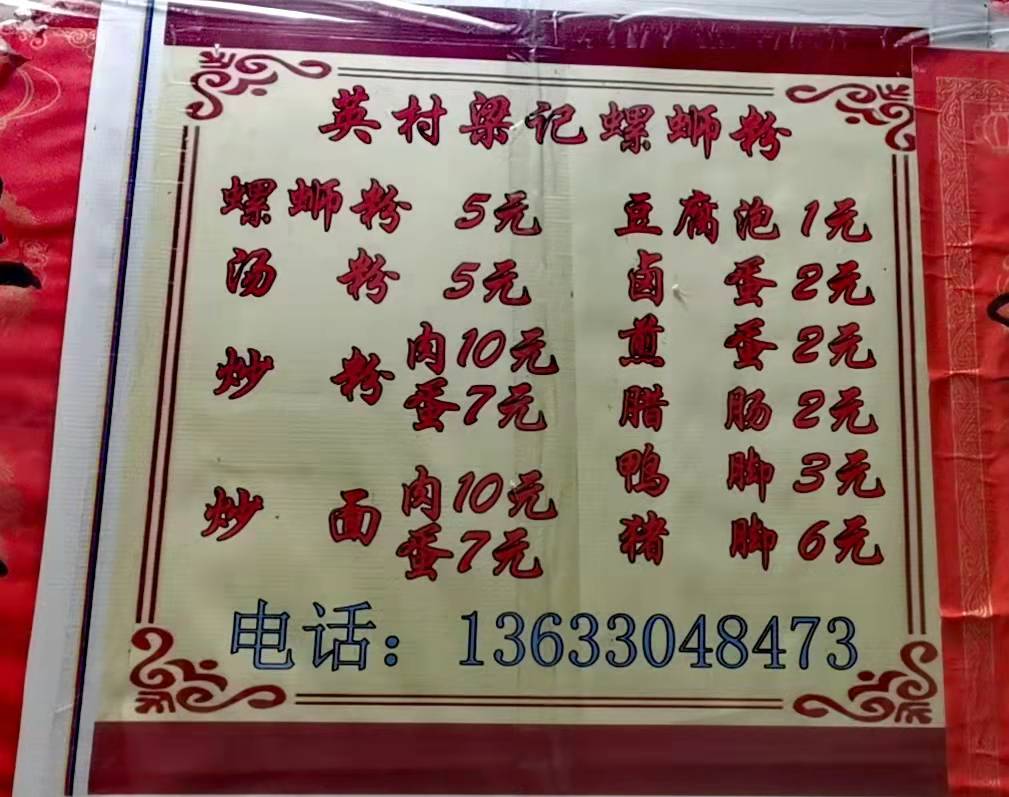 英村梁记螺蛳粉
螺蛳粉 5元
汤粉 5元
炒粉 肉10元
蛋7元
炒面 肉10元
蛋7元
豆腐泡 1元
卤蛋 2元
煎蛋 2元
腊肠 2元
鸭脚 3元
猪脚 6元
电话：13633048473